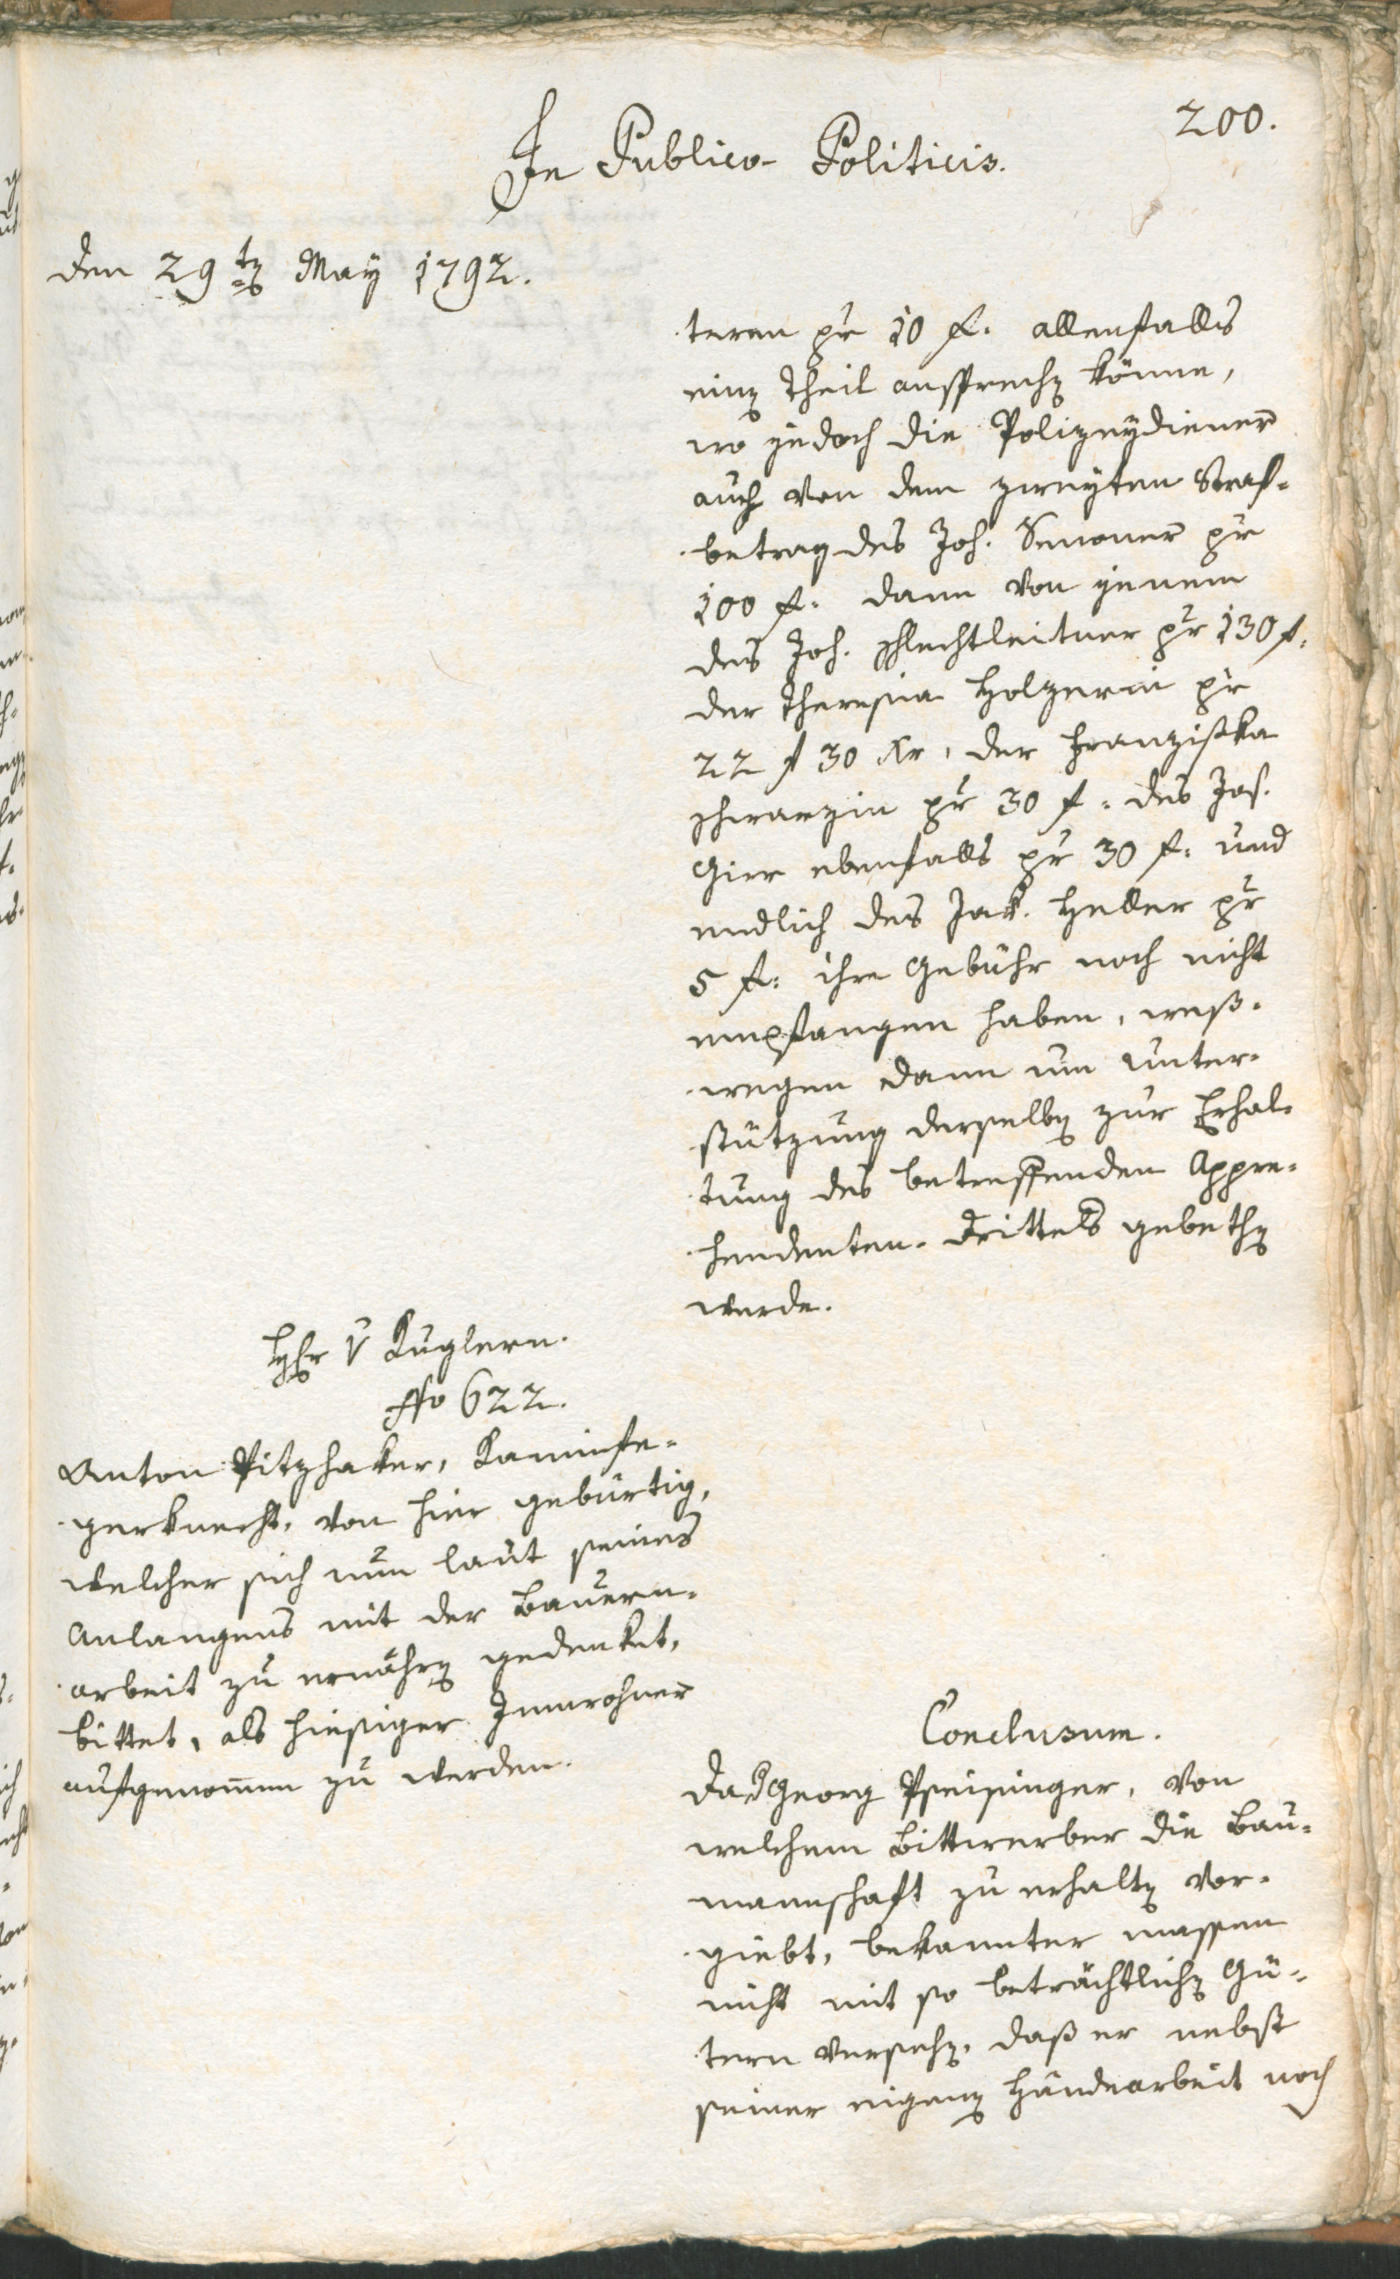 200.
In Publico-Politicis.
den 29ten May 1792.
teren pr 10 f. allenfalls
einen Theil ansprechen könne,
wo jedoch die Polizeydiener
auch von dem zweyten Straf-
betrag des Joh. Senoner pr
100 f. dann von jenem
des Joh. Schlechtleitner pr 130 f.
der Theresia Holzerin pr
22 f 30 Xr, der Franziska
Schwarzin pr 30 f. des Jos.
Girr ebenfalls pr 30 f. und
endlich des Jak. Heller pr
5 f. ihre Gebühr noch nicht
empfangen haben, weß-
wegen dann um Unter-
stützung derselben zur Erhal-
tung des betreffenden Appre-
hendenten-Drittels gebethen
werde.
Hr v Kuglern.
No 622.
Anton Pitzhaker, Kaminfe-
gerknecht, von hier gebürtig,
welcher sich nun laut seines
Anlangens mit der Bauern-
arbeit zu ernähren gedenket,
bittet, als hiesiger Innwohner
aufgenommen zu werden.
Conclusum.
Da Georg Pseisinger, von
welchem Bittwerber die Bau-
mannschaft zu erhalten vor-
giebt, bekannter massen
nicht mit so beträchtlichen Gü-
tern versehen, daß er nebst
seiner eigenen Händearbeit noch